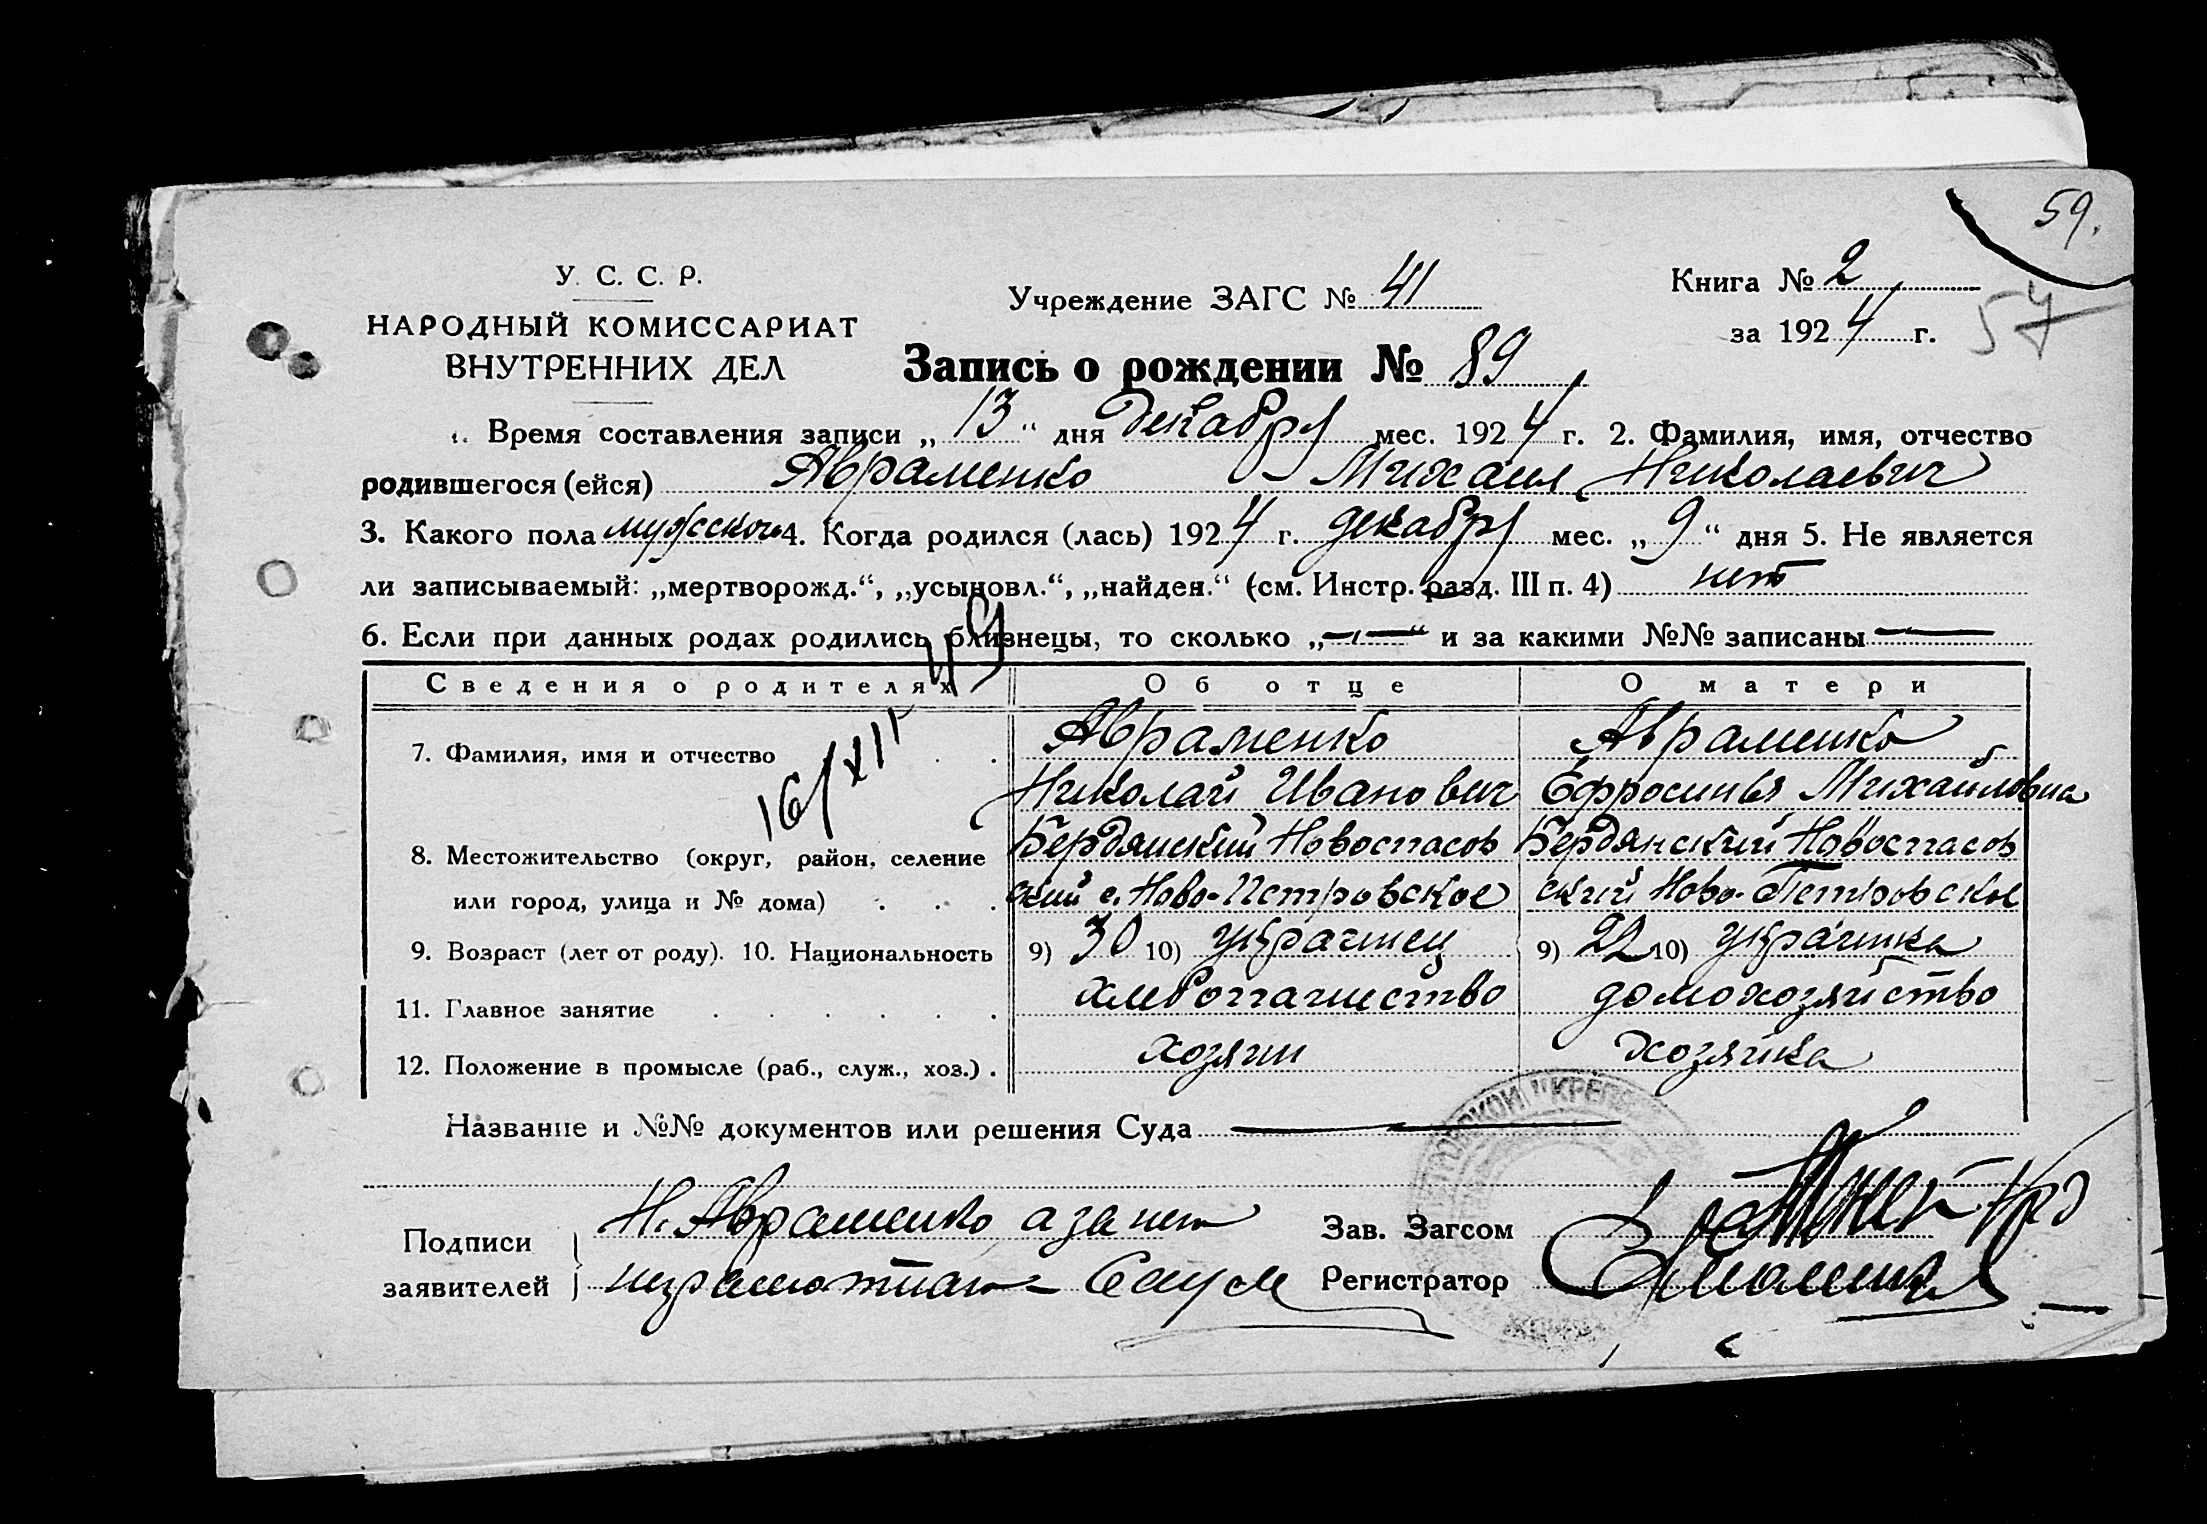 59.
У. С. С. Р.
НАРОДНЫЙ КОМИССАРИАТ
ВНУТРЕННИХ ДЕЛ
Учреждение ЗАГС № 41
Книга № 2
за 1924 г.
57
Запись о рождении № 89
1. Время составления записи „13“ дня Декабря мес. 1924 г. 2. Фамилия, имя, отчество
родившегося (ейся) Авраменко Михаил Николаевич
3. Какого пола мужского 4. Когда родился (лась) 1924 г. декабря мес. „9“ дня 5. Не является
ли записываемый: „мертворожд.“, „усыновл.“, „найден.“ (см. Инстр. разд. III п. 4) нет
6. Если при данных родах родились близнецы, то сколько „—“ и за какими №№ записаны —
Сведения о родителях Об отце О матери
7. Фамилия, имя и отчество Авраменко Авраменко
Николай Иванович Ефросинья Михайловна
16/XII
8. Местожительство (округ, район, селение Бердянский Новоспасов Бердянский Новоспасов
или город, улица и № дома) ский с. Ново-Петровское ский Ново-Петровское
9. Возраст (лет от роду). 10. Национальность 9) 30 10) украинец 9) 22 10) украинка
11. Главное занятие хлебопашество домохозяйство
12. Положение в промысле (раб., служ., хоз.) хозяин хозяйка
Название и №№ документов или решения Суда —
Подписи заявителей
Н. Авраменко а за нег
неграмотного
Зав. Загсом
Регистратор